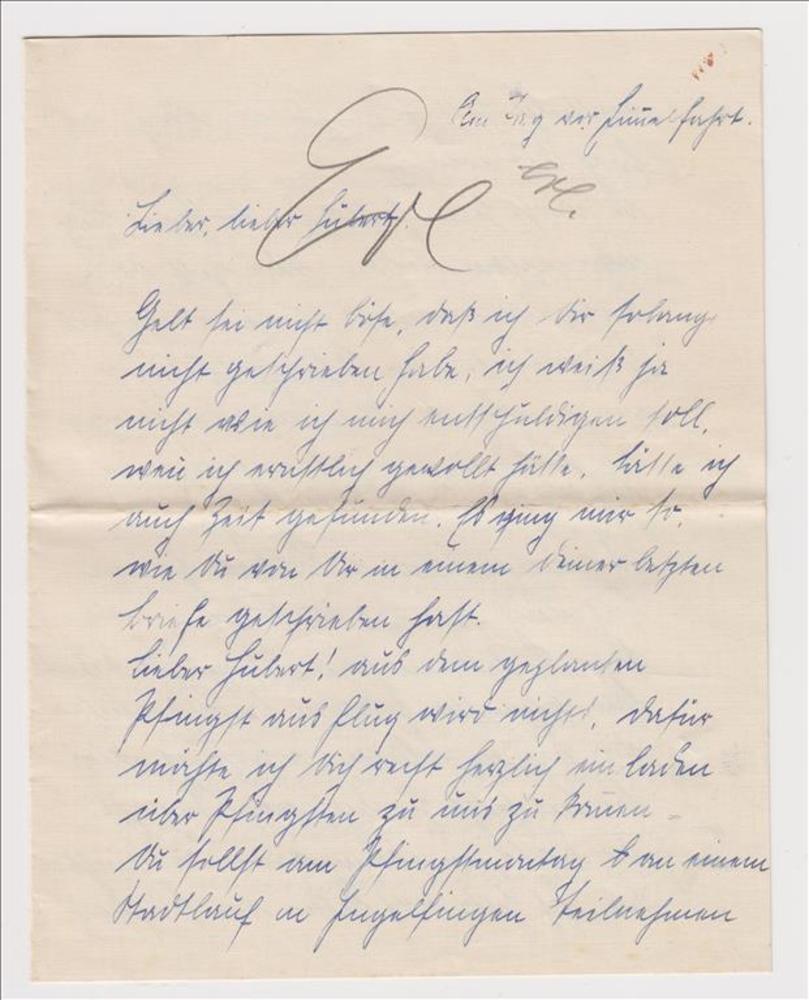 Am Tag vor Himmelfahrt.
Erl.
Lieber, lieber Hubert!
Gelt sei nicht böse, daß ich Dir solang
nicht geschrieben habe, ich weiß ja
nicht wie ich mich entschuldigen soll,
wen̄ ich ernstlich gewollt hätte, hätte ich
auch Zeit gefunden. Es ging mir so,
wie Du von Dir in einem Deiner letzten
Briefe geschrieben hast.
Lieber Hubert! aus dem geplanten
Pfingstausflug wird nichts, dafür
möchte ich Dich recht herzlich einladen
über Pfingsten zu uns zu kom̄en
Du sollst am Pfingstmontag an einem
Stadtlauf in Ingelfingen teilnehmen